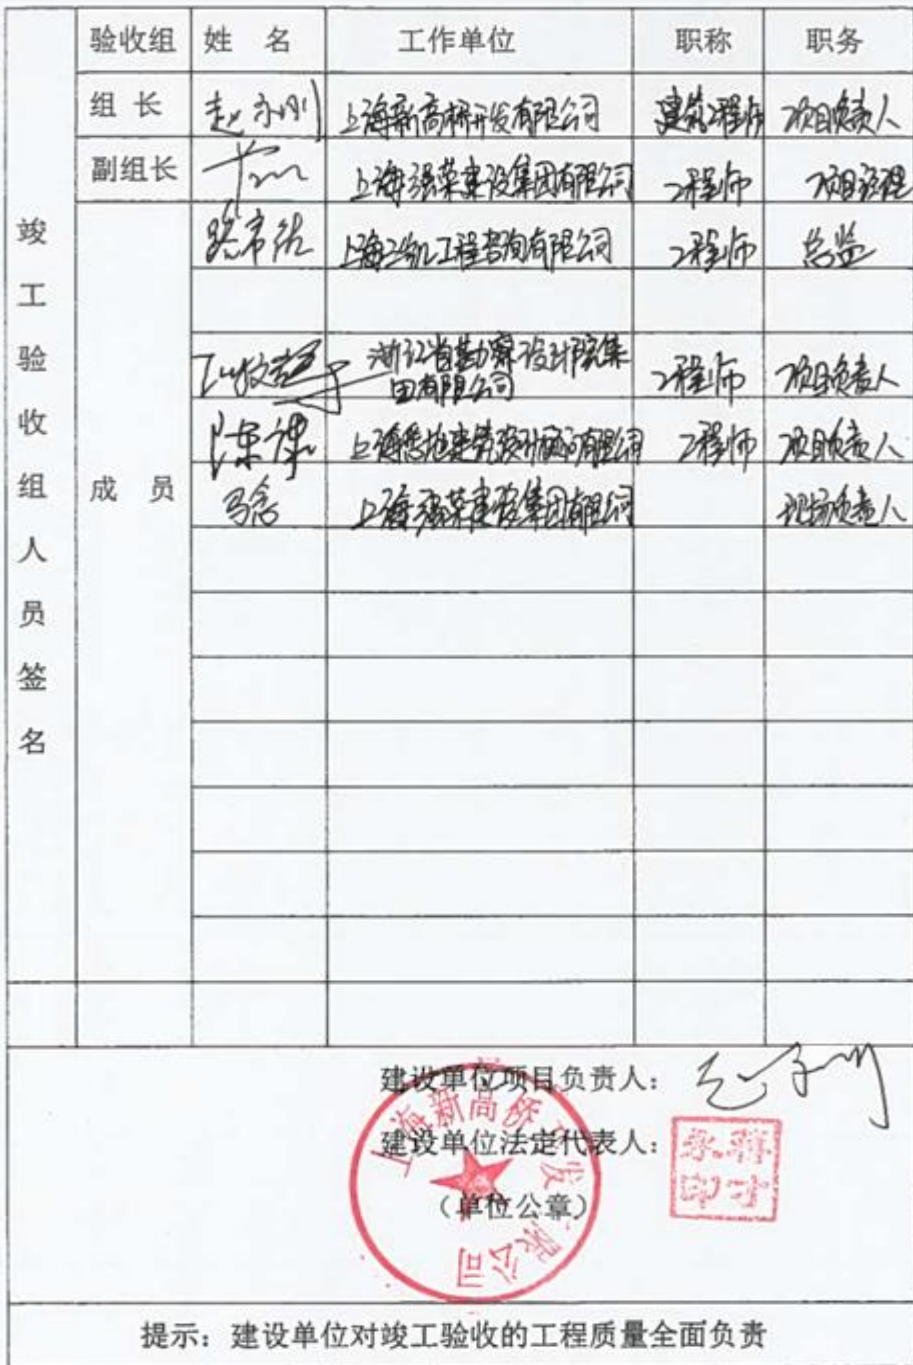 验收组 姓 名 工作单位 职称 职务
组 长 赵永刚 上海新高桥开发有限公司 建筑工程师 项目负责人
副组长 上海强荣建设集团有限公司 工程师 项目经理
上海三凯工程咨询有限公司 工程师 总监
浙江省勘察设计院集
团有限公司 工程师 项目负责人
上海悉地建筑设计顾问有限公司 工程师 项目负责人
马念 上海强荣建设集团有限公司 现场负责人
成 员
竣工验收组人员签名
建设单位项目负责人: 赵永刚
建设单位法定代表人:
(单位公章)
上海新高桥开发有限公司
提示: 建设单位对竣工验收的工程质量全面负责